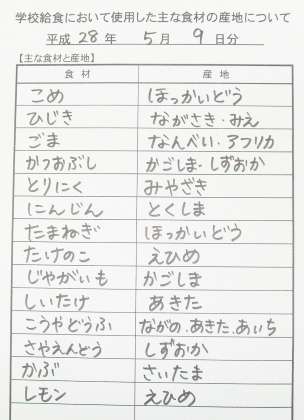 学校給食において使用した主な食材の産地について
平成 28 年 5 月 9 日分
【主な食材と産地】
食材 産地
こめ ほっかいどう
ひじき ながさき・みえ
ごま なんべい・アフリカ
かつおぶし かごしま・しずおか
とりにく みやざき
にんじん とくしま
たまねぎ ほっかいどう
たけのこ えひめ
じゃがいも かごしま
しいたけ あきた
こうやどうふ ながの、あきた、あいち
さやえんどう しずおか
かぶ さいたま
レモン えひめ